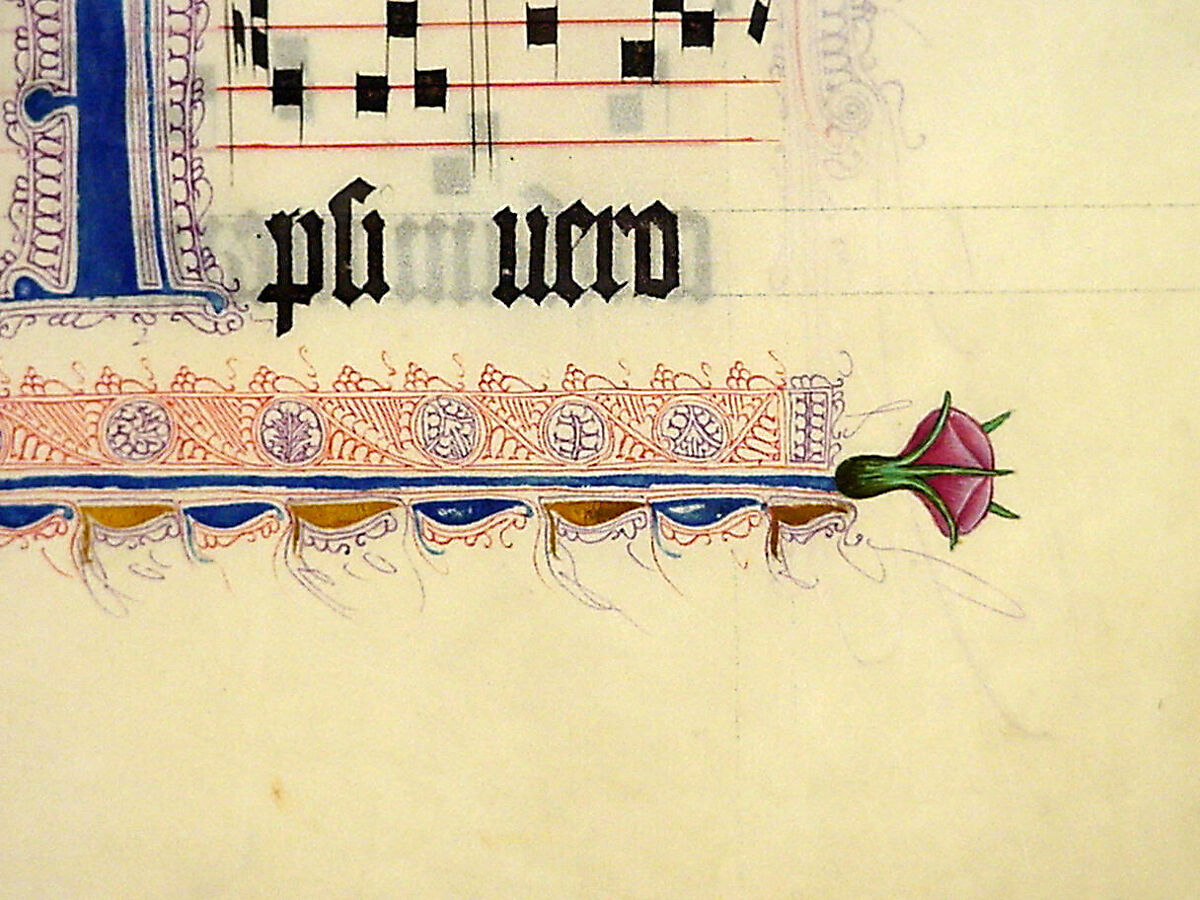 Ipsi uero